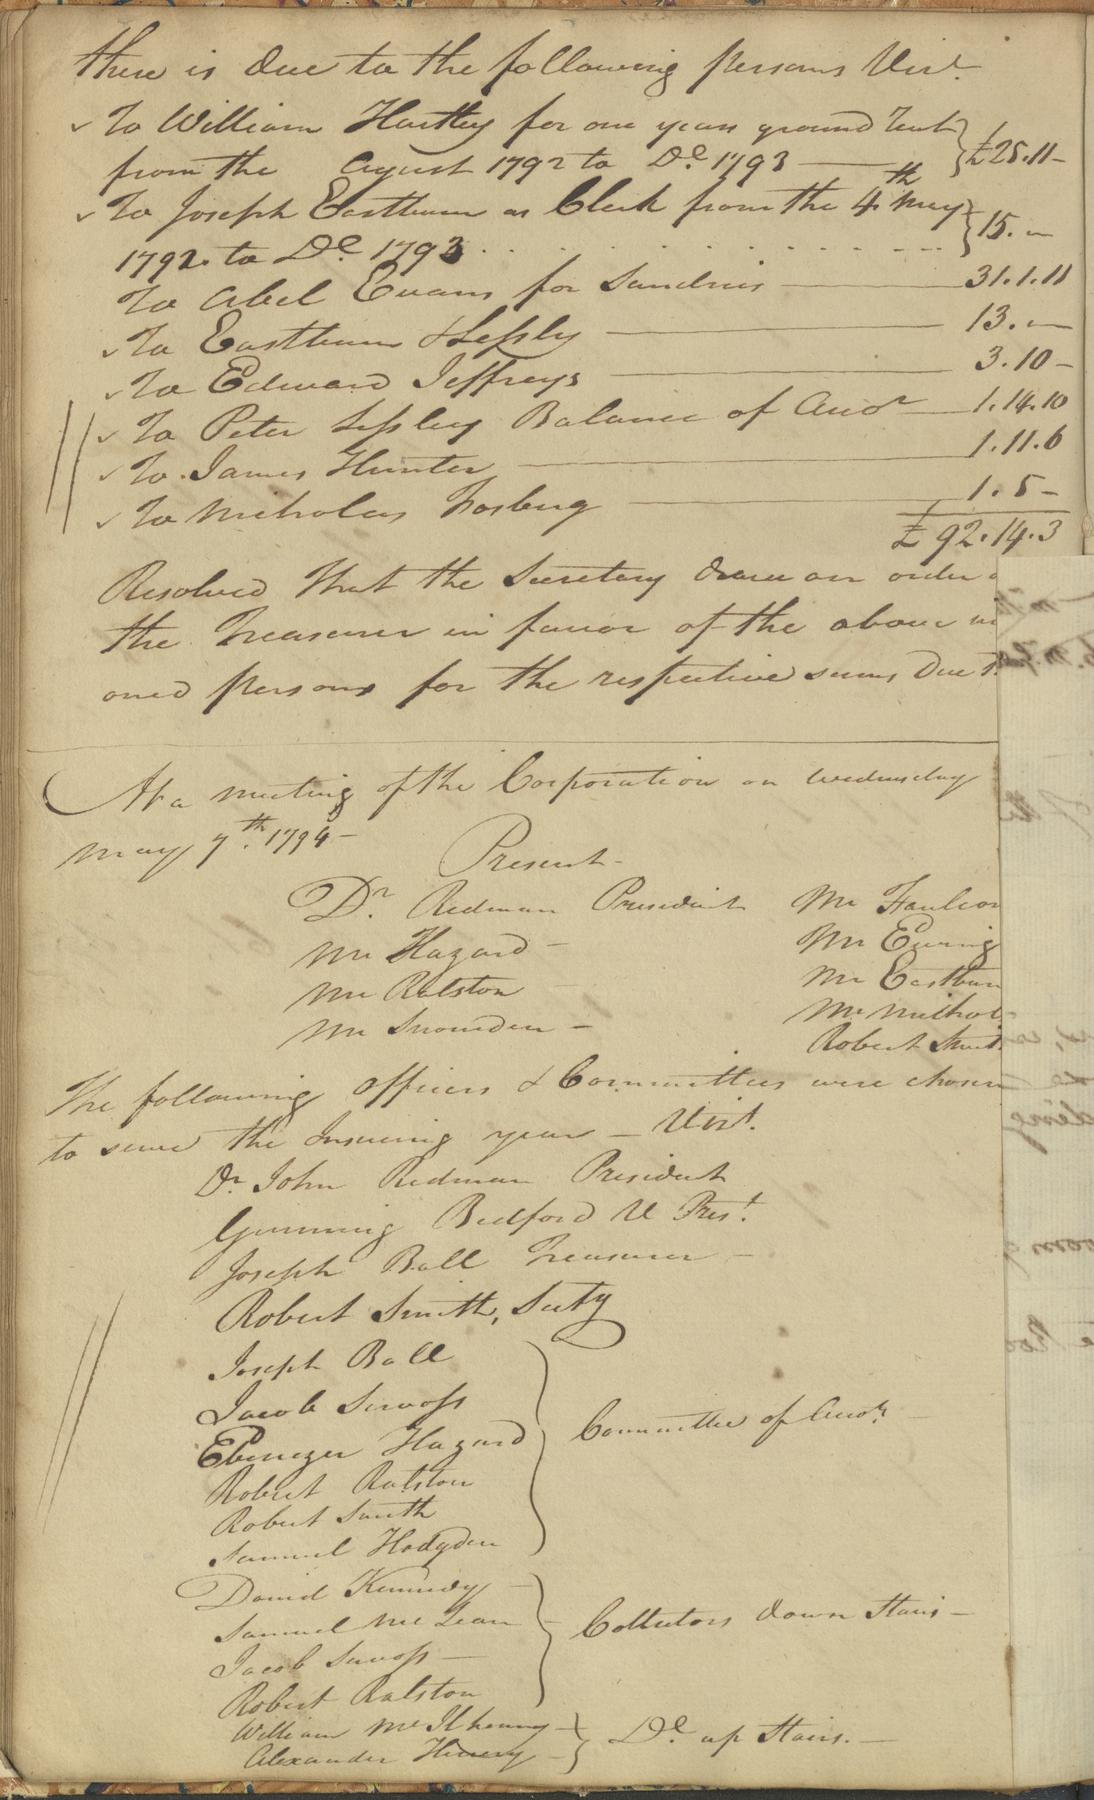 there is due to the following persons Vizt.
To William Hartley for one years ground Rent } £25.11–
from the August 1792 to Do. 1793
To Joseph Eastburn as Clerk from the 4th. May } 15.–
1792. to Do. 1793
To Abel Evans for Sundries 31.1.11
To Eastburn & Lessly 13.–
To Edward Jeffreys 3.10–
To Peter Lessley Balance of Accot 1.14.10
To James Hunter 1.11.6
To Nicholas 1.5–
£92.14.3
Resolved that the Secretary draw an order
the Treasurer in favor of the above
oned persons for the respective sums due
At a meeting of the Corporation on Wednesday
May 7th. 1794–
Present–
Dr. Redman President Mr Faulcon
Mr Hazard – Mr Ewing
Mr Ralston Mr Eastburn
Mr Snowden – Mr Nichol
Robert Smith
The following officers & Committees were chosen
to serve the Insueing year – Vizt.
Dr. John Redman President
Gunning Bedford V Prest.
Joseph Ball Treasurer –
Robert Smith, Secty
Joseph Ball
Jacob Servoss
Ebenezer Hazard } Committee of Accots.
Robert Ralston
Robert Smith
Samuel Hodgdon
David Kennedy –
Samuel Mc Lean } Collectors down Stairs –
Jacob Servoss –
Robert Ralston
William Mc Ilhenny – } Do. up Stairs. –
Alexander Henry –